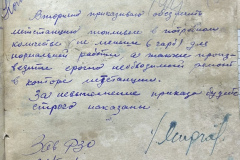 Вторично приказываю обеспечить
метстанцию топливом в потребном
количестве не менее 6 гарб для
нормальной работы а также произ-
водите срочно необходимый ремонт
в конторе метстанции.
За невыполнение приказа будете
строго наказаны
Зав РЗО